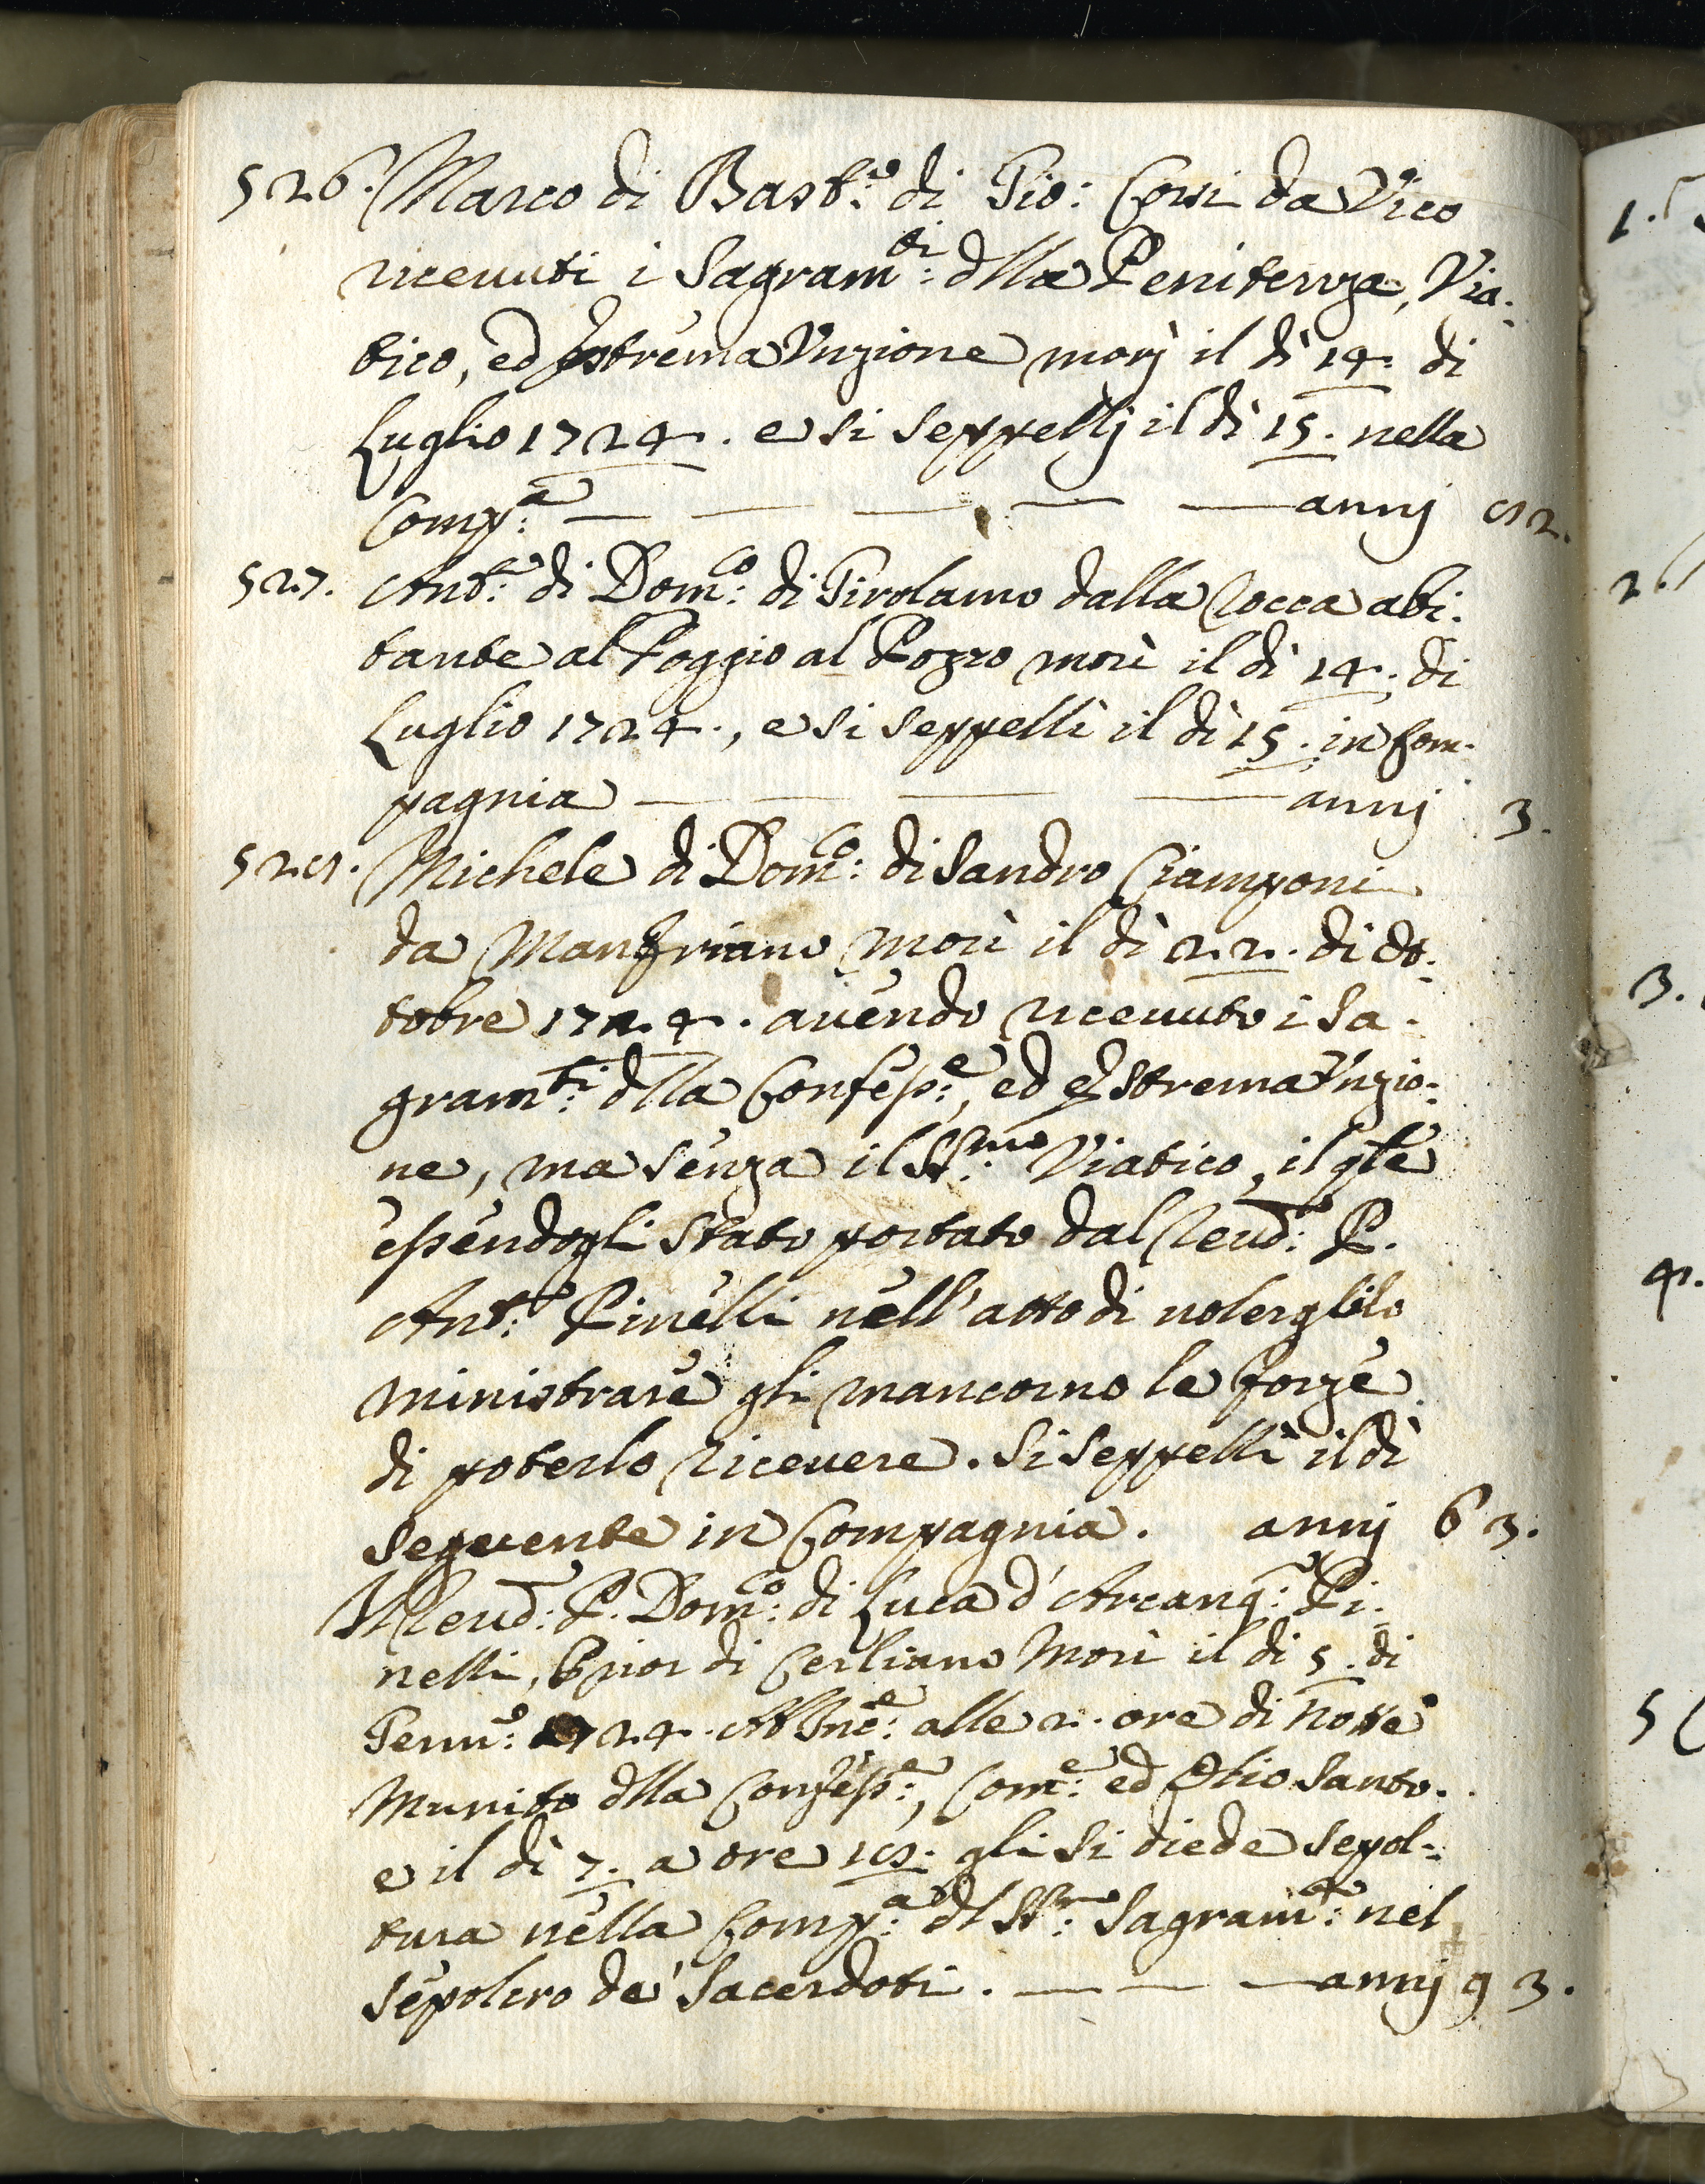 526. Marco di Bast:º di Gio: Corsi da Vico
riceuuti i Sagram:ti dlla Penitenza, Via:
tico, ed Estrema Unzione morj il dì 14. di
Luglio 1724. e si seppellj il dì 15. nella
Comp:a — — — — — annj 82.
527. Ant:º di Dom:co di Girolamo dalla Rocca abi:
tante al Poggio al Pozzo morì il dì 14. di
Luglio 1724., e si seppellì il dì 15. in Com:
pagnia — — — — annj 3.
528. Michele di Dom:co di Sandro Ciamponi
da Manfriano morì il dì 22. di Ot:
tobre 1724. auendo riceuuto i Sa:
gram:ti dlla Confess:e, ed Estrema Unzio:
ne, ma senza il SS:mo Viatico, il qle
essendogli stato portato dal Reud:º P.
Ant:º Pinelli nell'atto di uolerglilo
ministrare gli mancorno le forze
di poterlo riceuere. Si seppellì il dì
seguente in Compagnia. annj 63.
Il Reud:º P. Dom:co di Luca d'Arcang:º Pi:
nelli, Prior di Cerliano Morì il di 5. di
Genn:º 1724. Ab Inc:e alle 2. ore di Notte
Munito dlla Confess:e, Com:e ed Olio Santo.
e il dì 7. a ore 18. gli si diede sepol:
tura nella Comp:a dl SS:mo Sagram:to nel
sepolcro de' Sacerdoti. — — — annj 93.
1.
2.
3.
4.
5